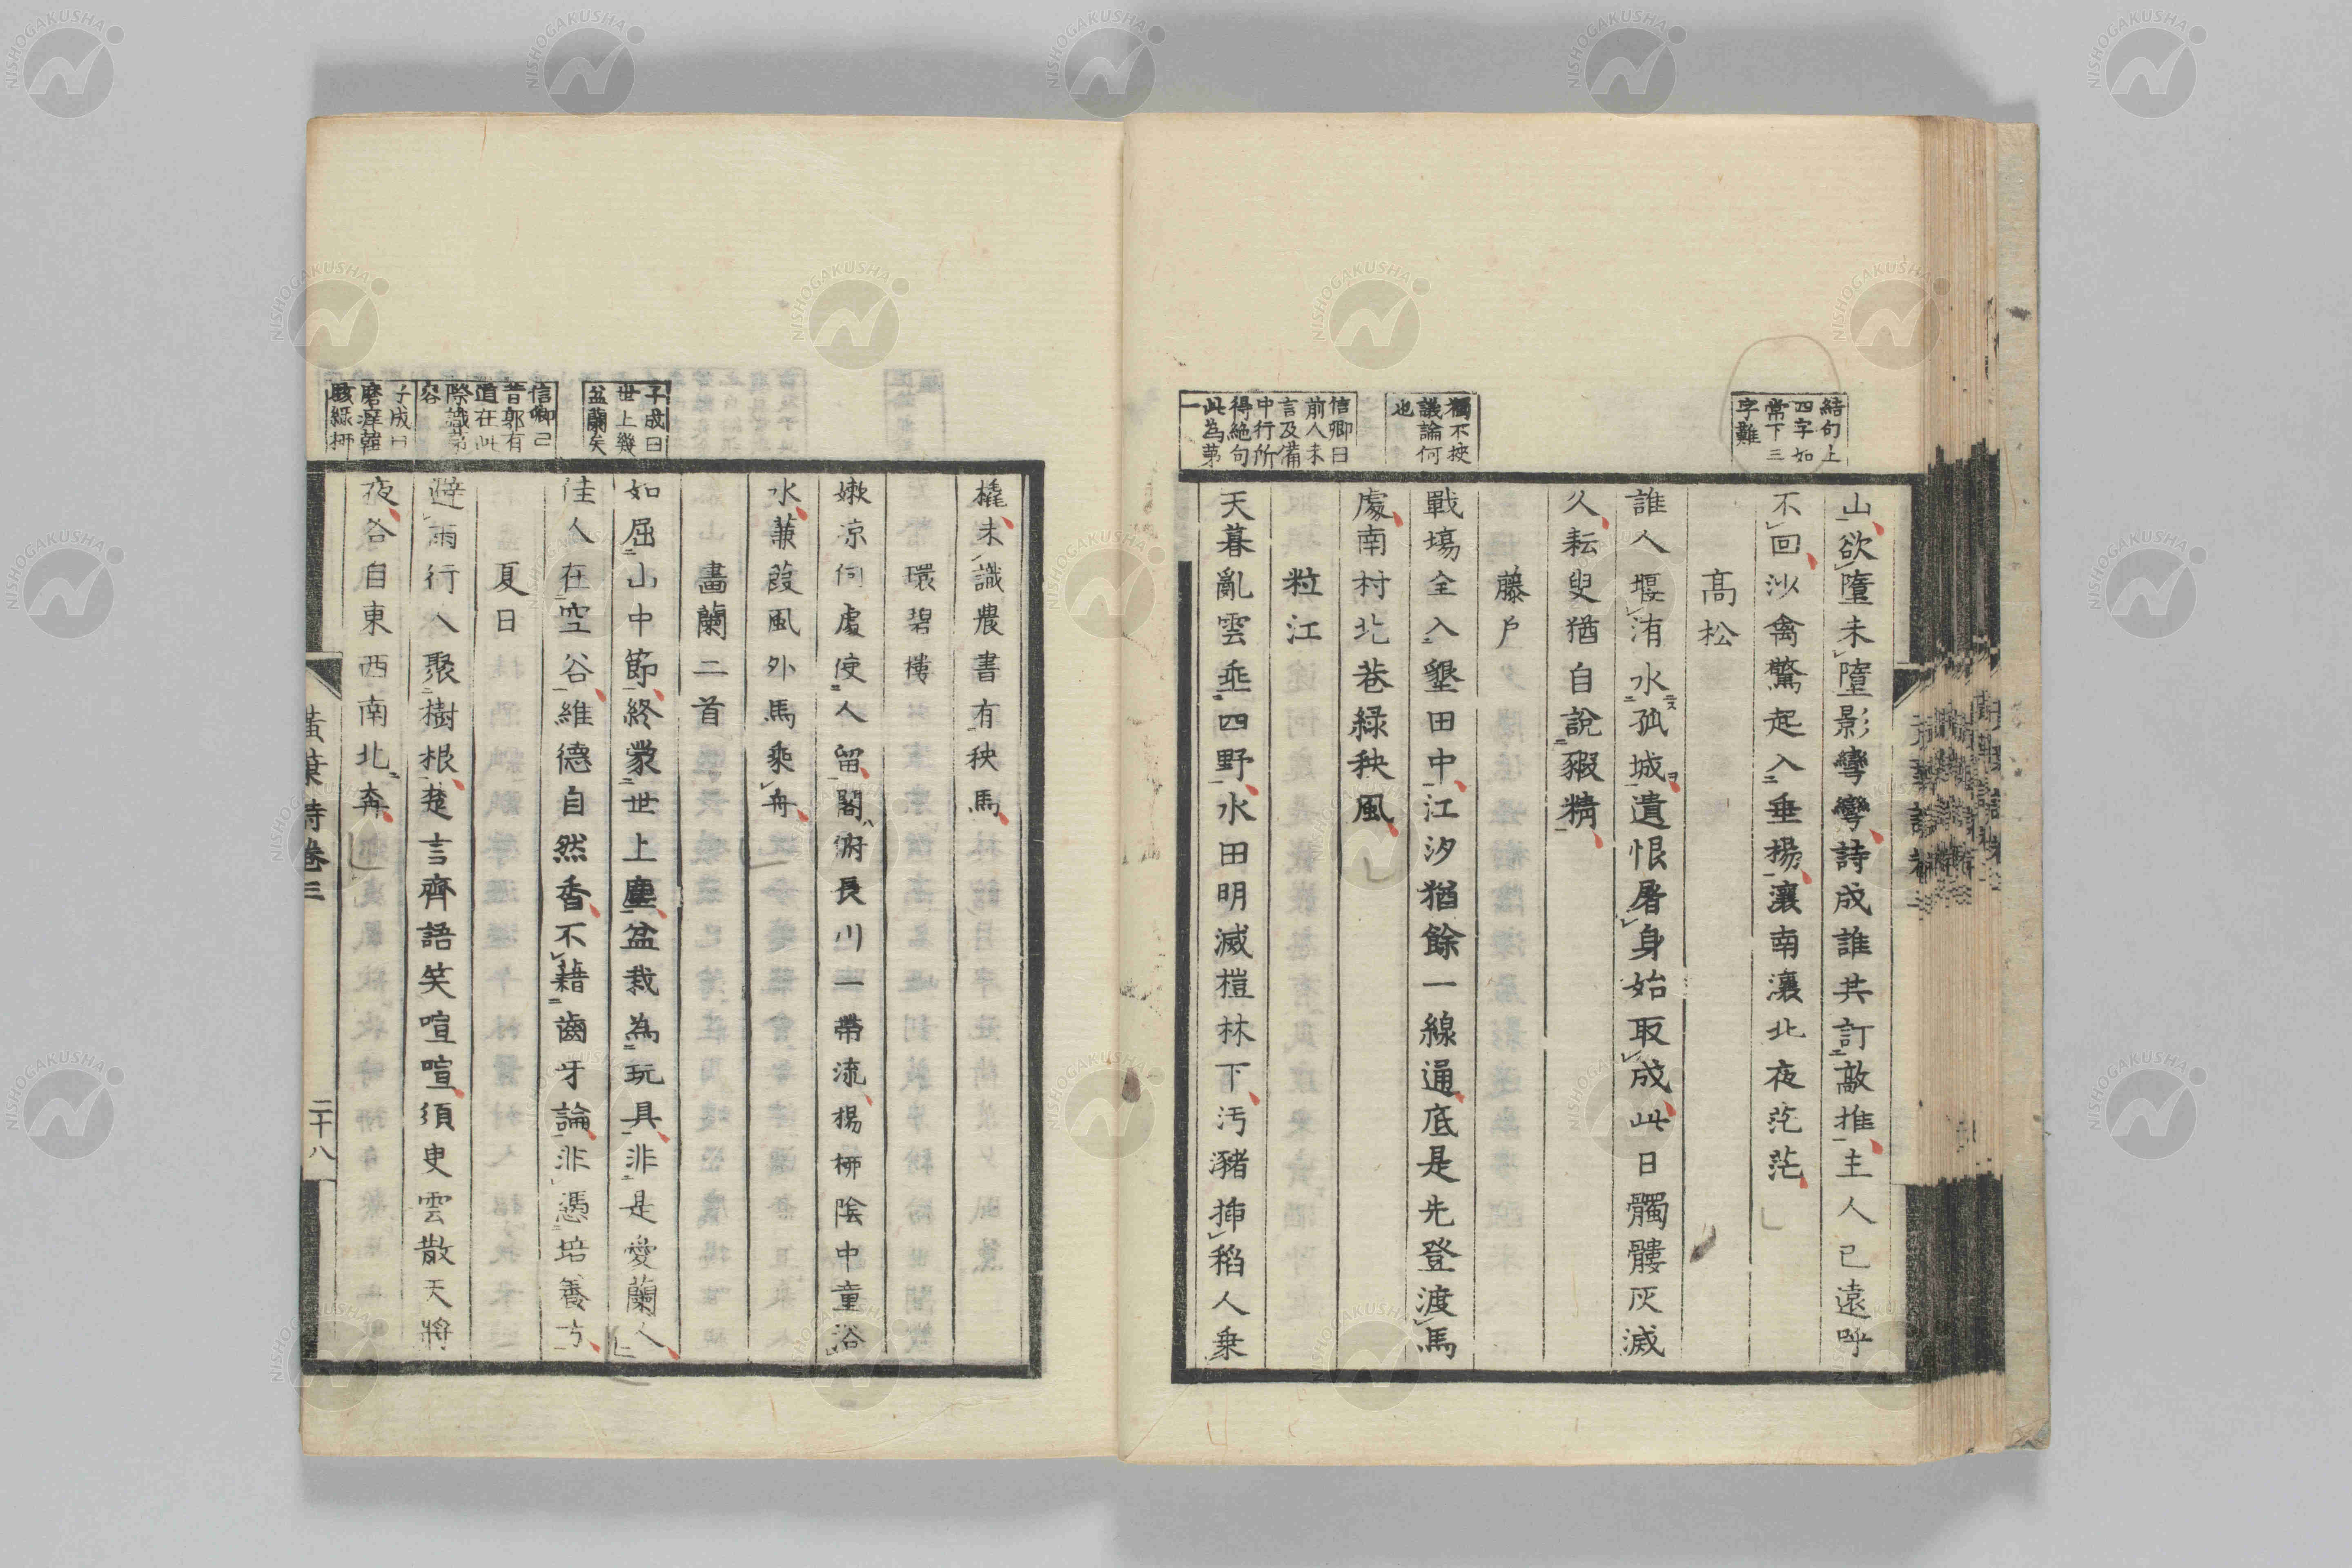 結句上
四字如
常下三
字難
山欲墮未墮影彎彎詩成誰共訂敲推主人已遠呼
不回沙禽驚起入垂楊瀼南瀼北夜茫茫
高松
誰人堰洧水孤城遺恨屠身始取成此日髑髏灰滅
久耘叟猶自說猳精
藤戶
獨不挍
議論何
也
戰場全入墾田中江汐猶餘一線通底是先登渡馬
處南村北巷綠秧風
粒江
信卿曰
前人未
言及備
中行所
得絶句
此為第
一
天暮亂雲垂四野水田明滅榿林下汚豬揷稻人乗
橇未識農書有秧馬
環碧樓
嫰凉何處使人留閣俯長川一帶流楊栁陰中童浴
水蒹葭風外馬乘舟
畵蘭二首
子成曰
世上幾
盆蘭矣
如屈山中節終蒙世上塵盆栽為玩具非是愛蘭人
佳人在空谷維德自然香不藉齒牙論非憑培養方
夏日
信卿曰
昔郭有
道在此
際識茅
容
避雨行人聚樹根楚言齊語笑喧喧須臾雲散天將
子成曰
磨涅韓
夜各自東西南北奔
黃葉
詩卷三
二十八
NISHOGAKUSHA